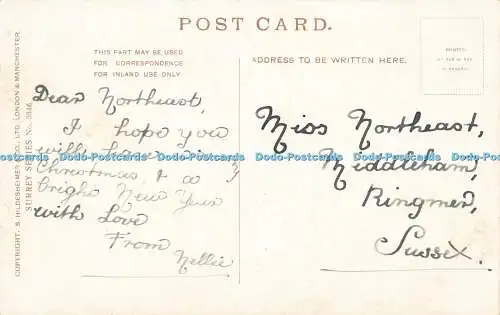 POST CARD.
THIS PART MAY BE USED
FOR CORRESPONDENCE
FOR INLAND USE ONLY
ADDRESS TO BE WRITTEN HERE.
COPYRIGHT. S. HILDESHEIMER & CO., LTD. LONDON & MANCHESTER.
SURREY SERIES No.
Dear Northeast,
I hope you
will have
Christmas, & a
Bright New Year
with Love
From
Nellie
Miss Northeast,
Middleham,
Ringmer,
Sussex.
Dodo-Postcards Dodo-Postcards Dodo-Postcards Dodo-Postcards